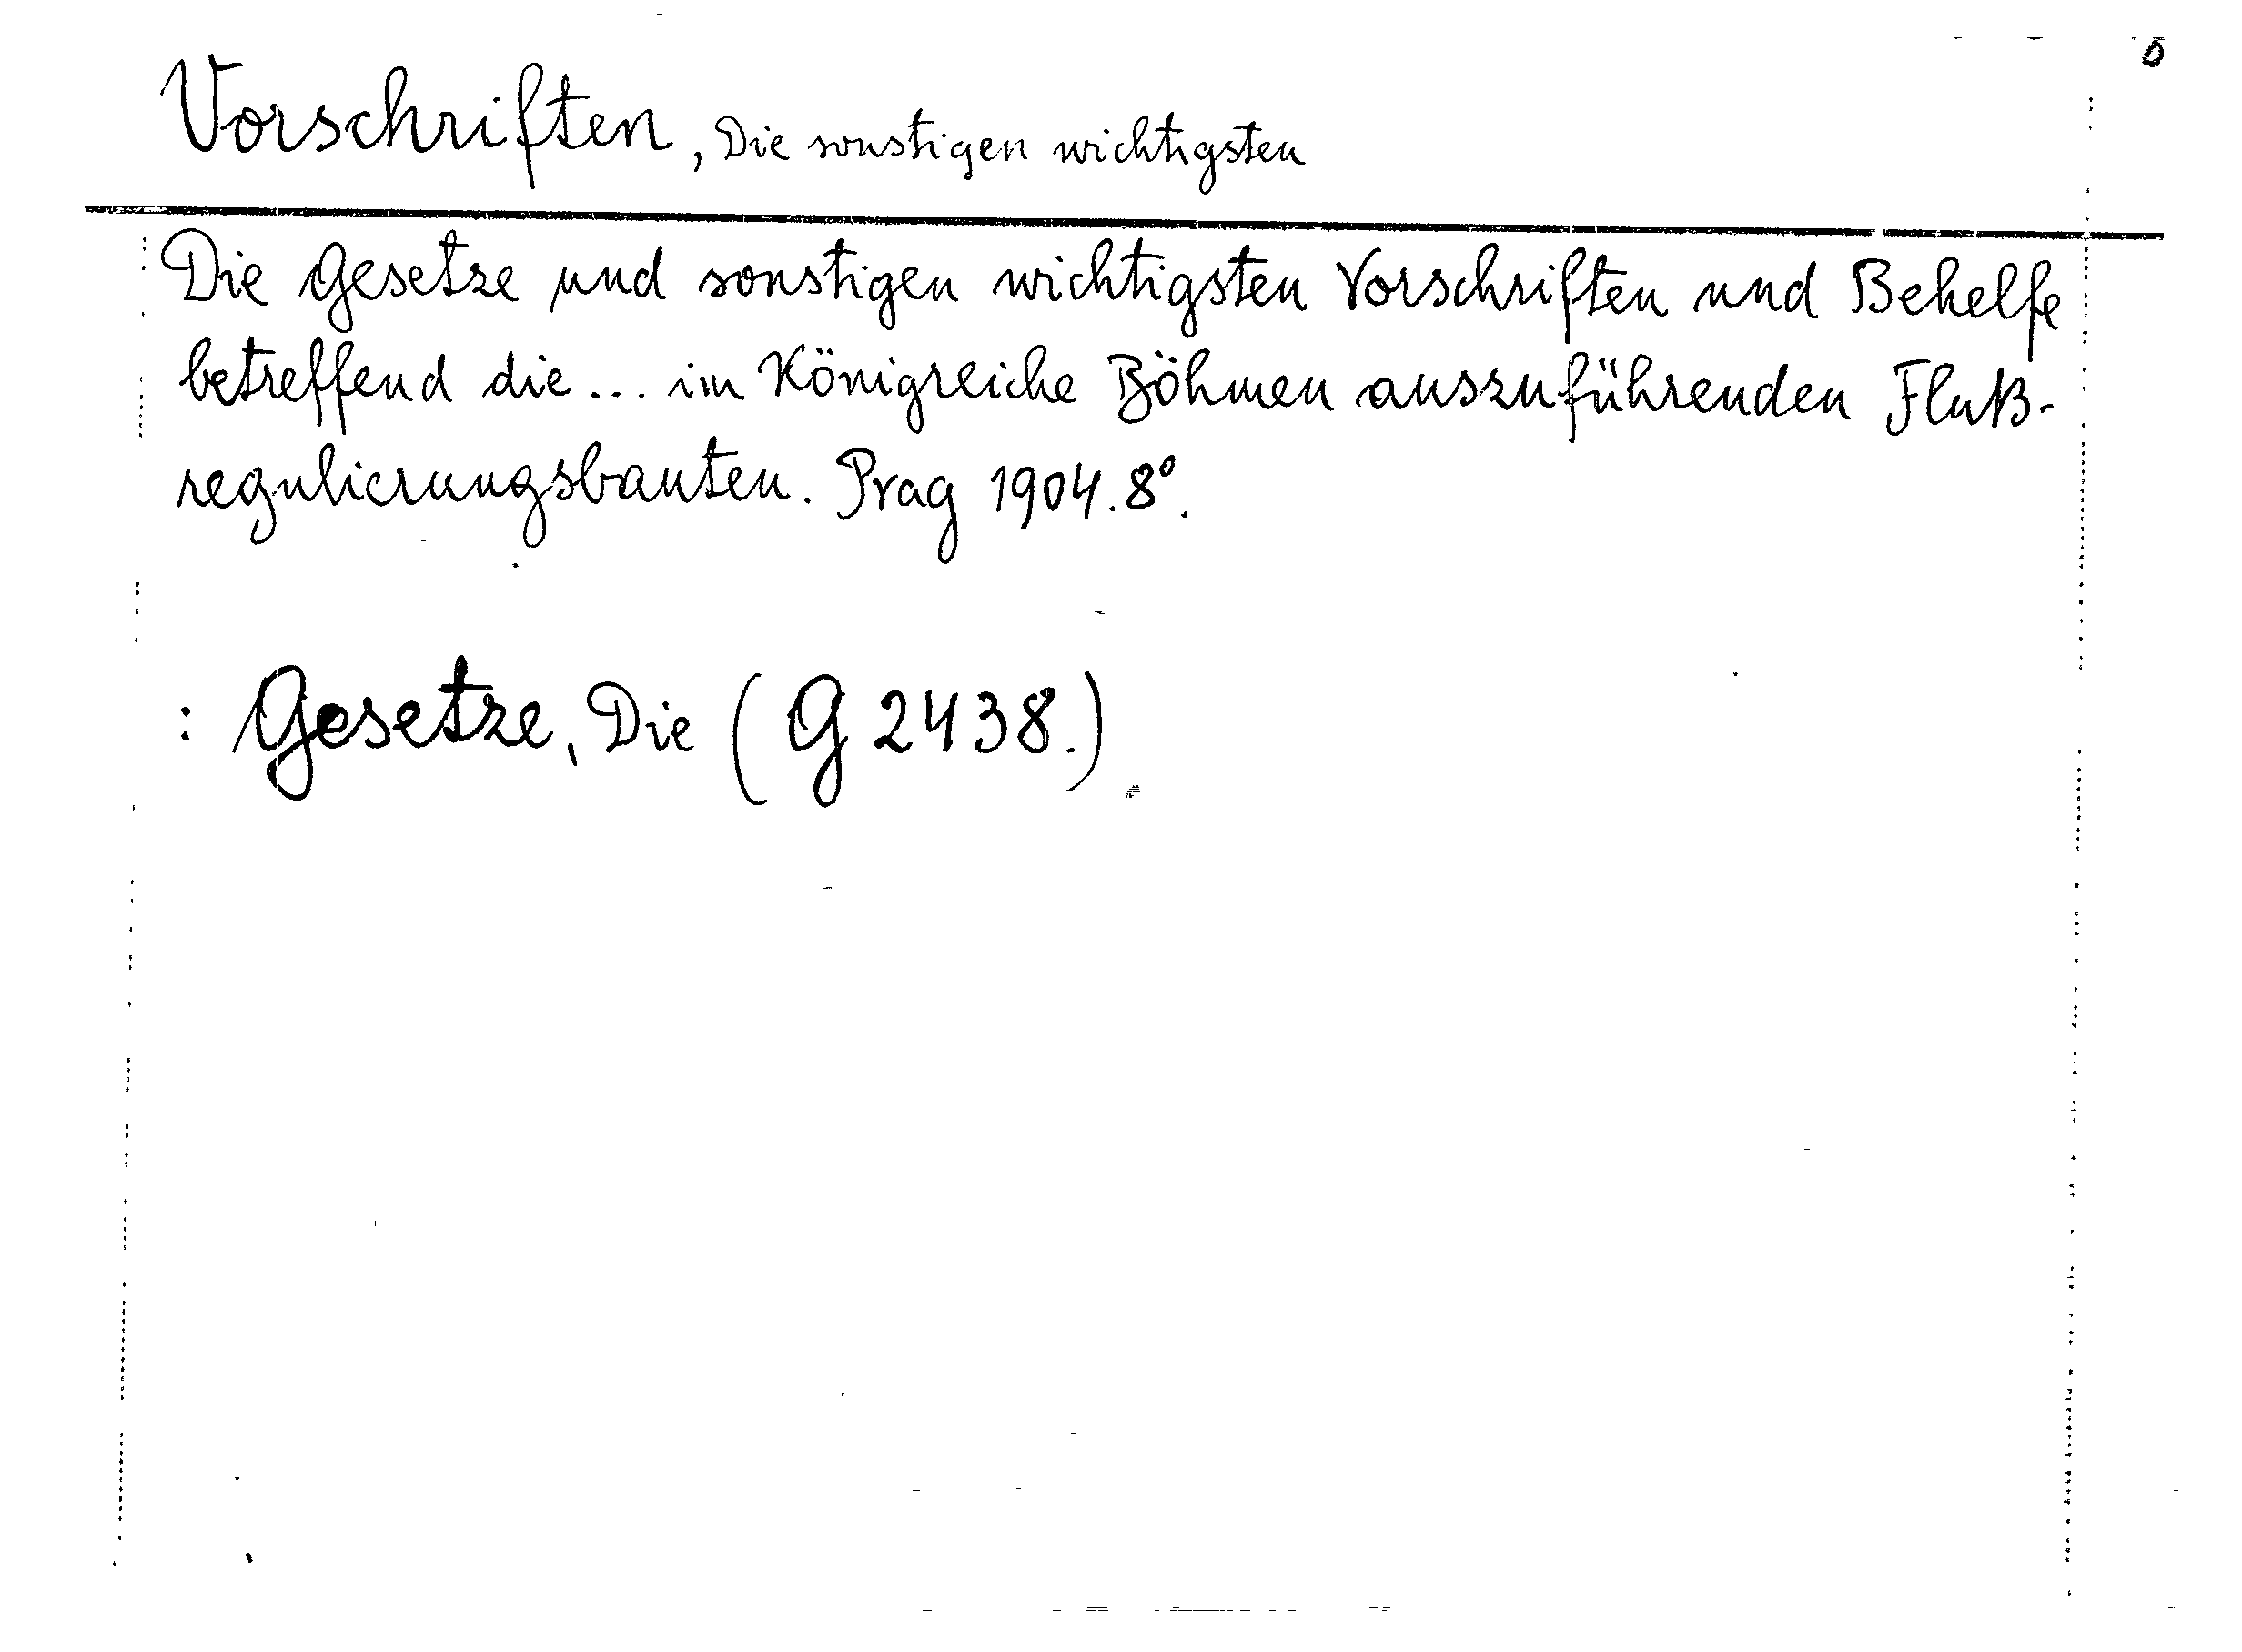 Vorschriften, Die sonstigen wichtigsten
Die Gesetze und sonstigen wichtigsten Vorschriften und Behelfe
betreffend die... im Königreiche Böhmen auszuführenden Fluß-
regulierungsbauten. Prag 1904. 8°.
: Gesetze, Die (G 2438.)